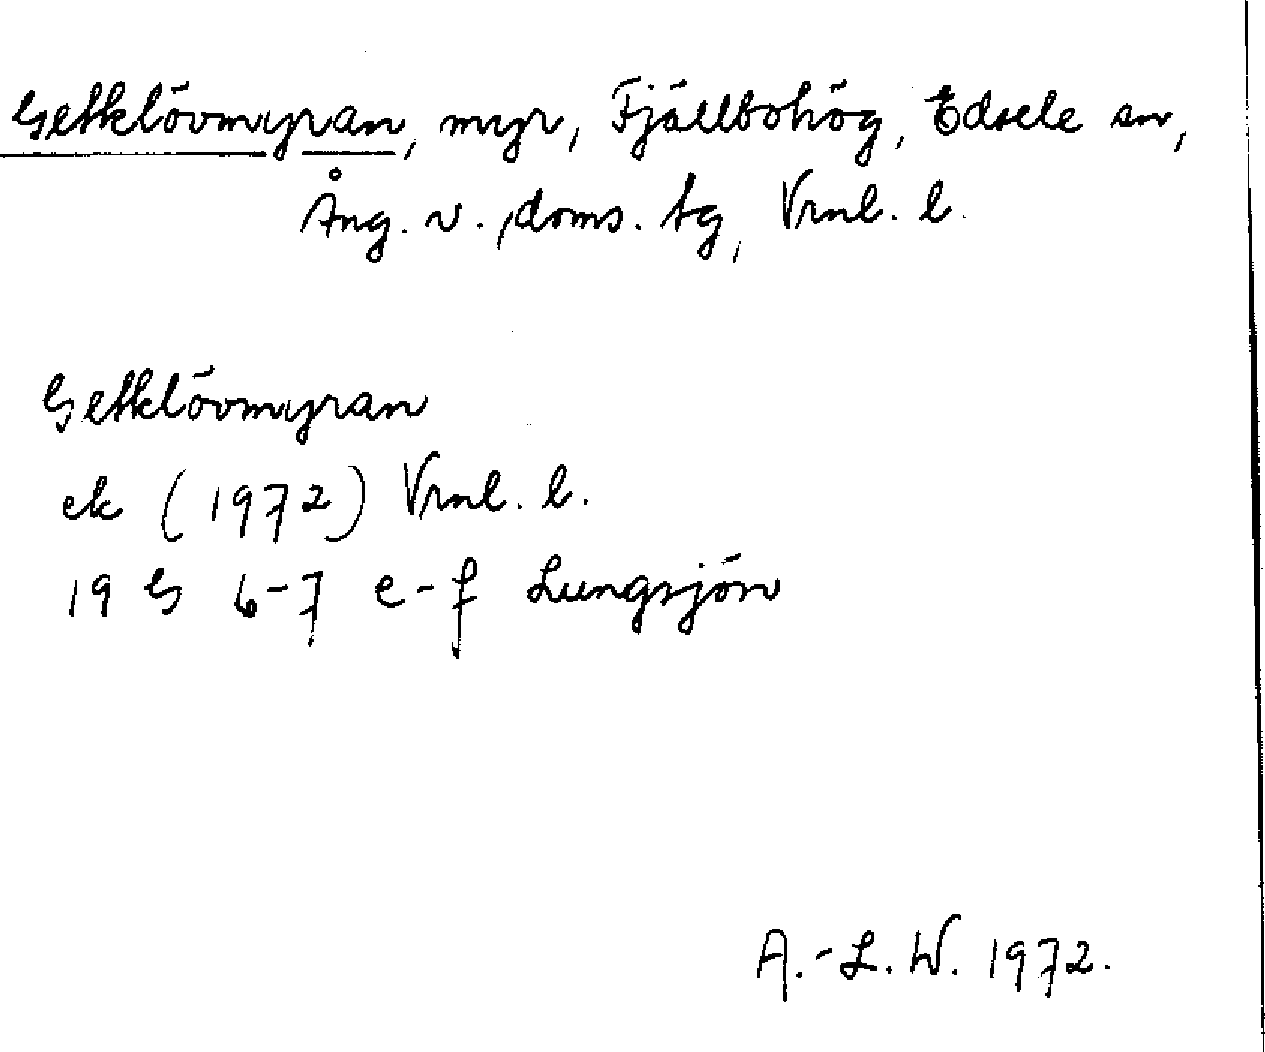 Getklövmyran, myr, Fjällbohög, Edsele sn,
Ång. v. doms. tg, Vrnl. l.
Getklövmyran
ek (1972) Vrnl. l.
19 G 6-7 e-f Lungsjön
A.-L. W. 1972.